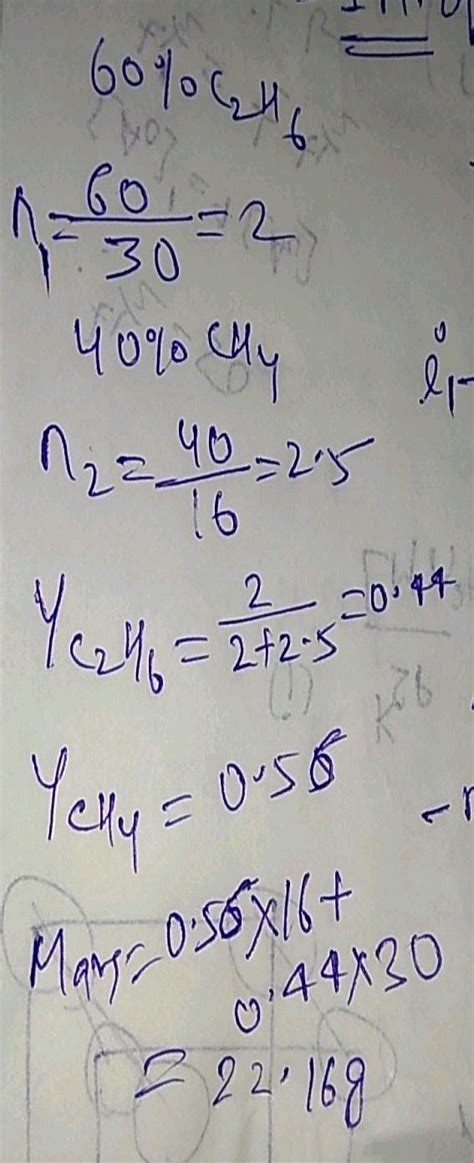 60% C₂H₆
n₁ = 60/30 = 2
40% CH₄
n₂ = 40/16 = 2.5
Y_C₂H₆ = 2/(2+2.5) = 0.44
Y_CH₄ = 0.56
M_avg = 0.56×16+
0.44×30
= 22.16g